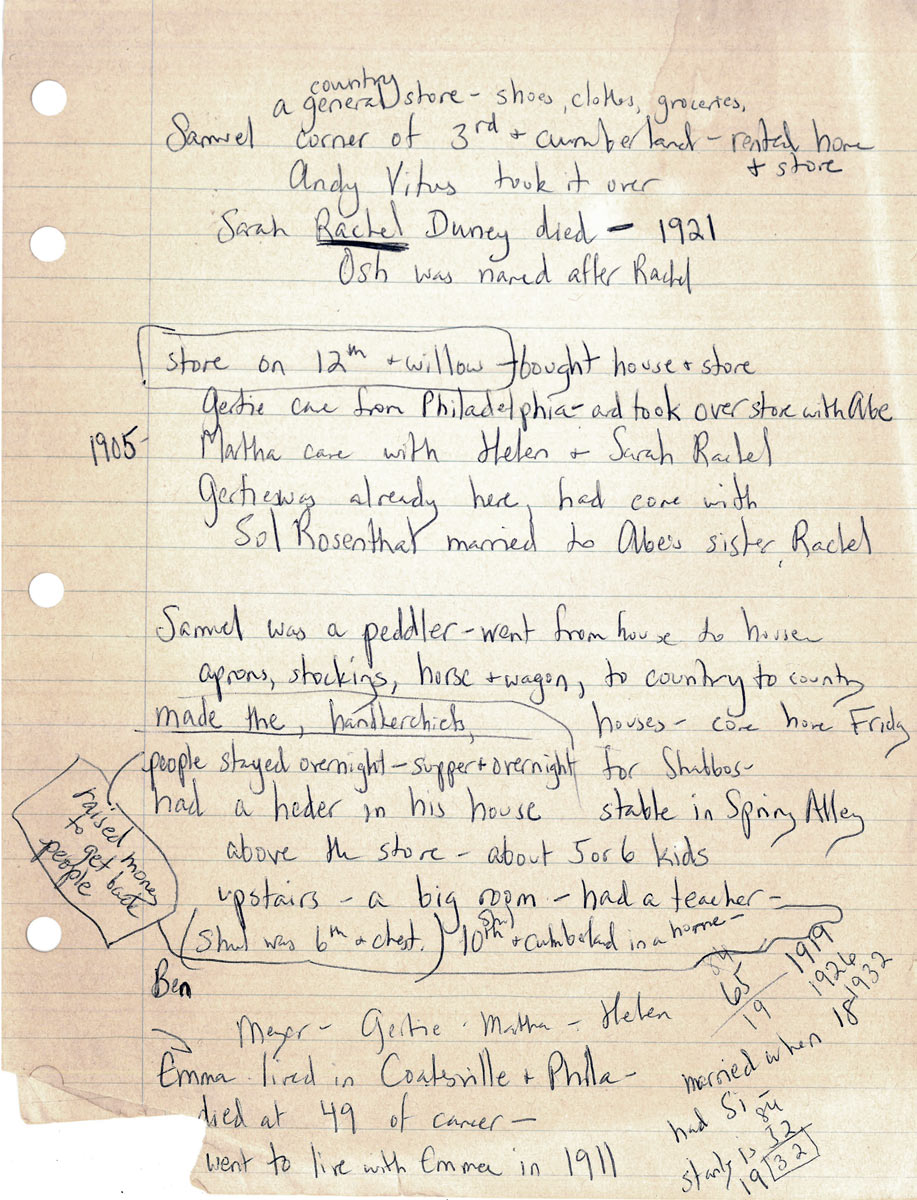 country
a general store - shoes, clothes, groceries,
Samuel corner of 3rd + cumberland - rental home
+ store
Andy Vitus took it over
Sarah Rachel Duney died - 1921
Osh was named after Rachel
store on 12th + willow - bought house + store
Gertie came from Philadelphia - and took over store with Abe
1905 - Martha came with Helen + Sarah Rachel
Gertie was already here, had come with
Sol Rosenthal married to Abe's sister, Rachel
Samuel was a peddler - went from house to house
aprons, stockings, horse + wagon, to country to country
made the, handkerchiefs, houses - come home Friday
people stayed overnight - supper + overnight for Shabbos -
had a heder in his house stable in Spring Alley
above the store - about 5 or 6 kids
upstairs - a big room - had a teacher -
raised money
to get back
people
(Shul was 6th + chest.) 10th + cumberland in a home -
Shul
Ben
Meyer - Gertie - Martha - Helen
Emma lived in Coatesville + Phila -
died at 49 of cancer -
went to live with Emma in 1911
84
65
19
1919
1926
1932
married when 18
had Si
84
32
19 32